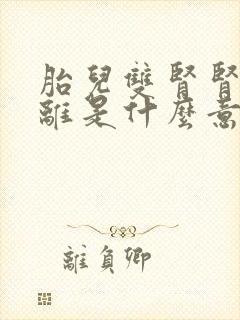 胎兒雙腎腎
離是什麼意
離負卿